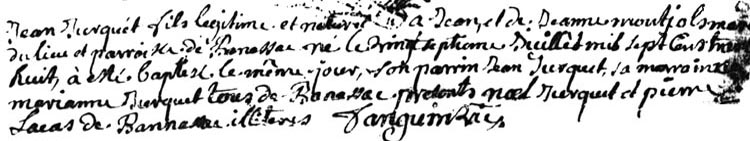 Jean Turquet fils legitime et naturel a Jean, et de Jeanne montjols
du lieu et parroisse de Banassac ne le vint septieme Juillet mil sept cent
huit, à esté baptisé le même jour, son parrin Jean Turquet, sa marraine
marianne Turquet tous de Banassac presents noel Turquet et pierre
Lacas de Bannassac illeteres